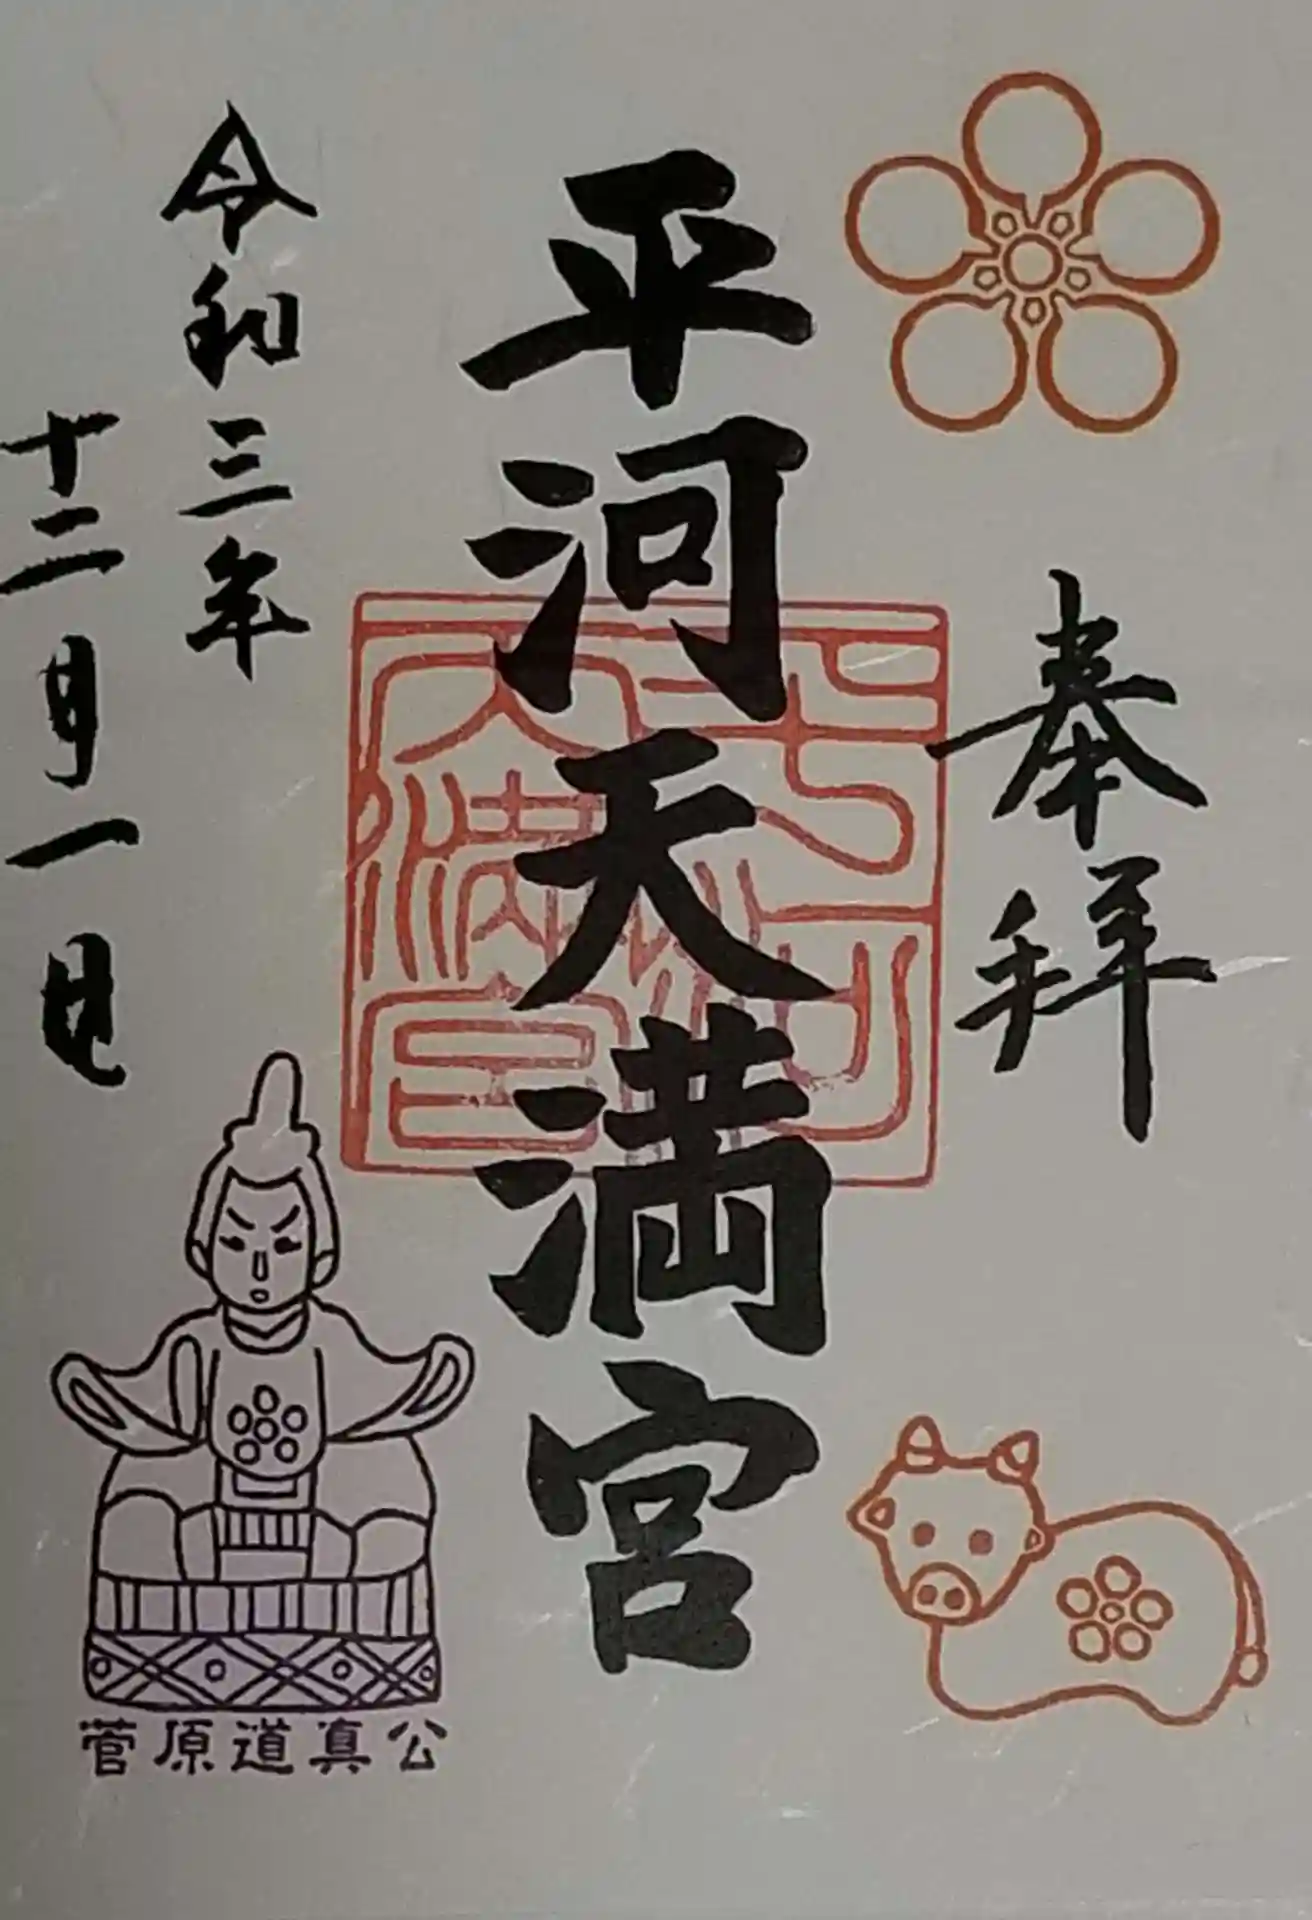 奉拝
平河天満宮
令和三年
十二月一日
菅原道真公
平河天満宮